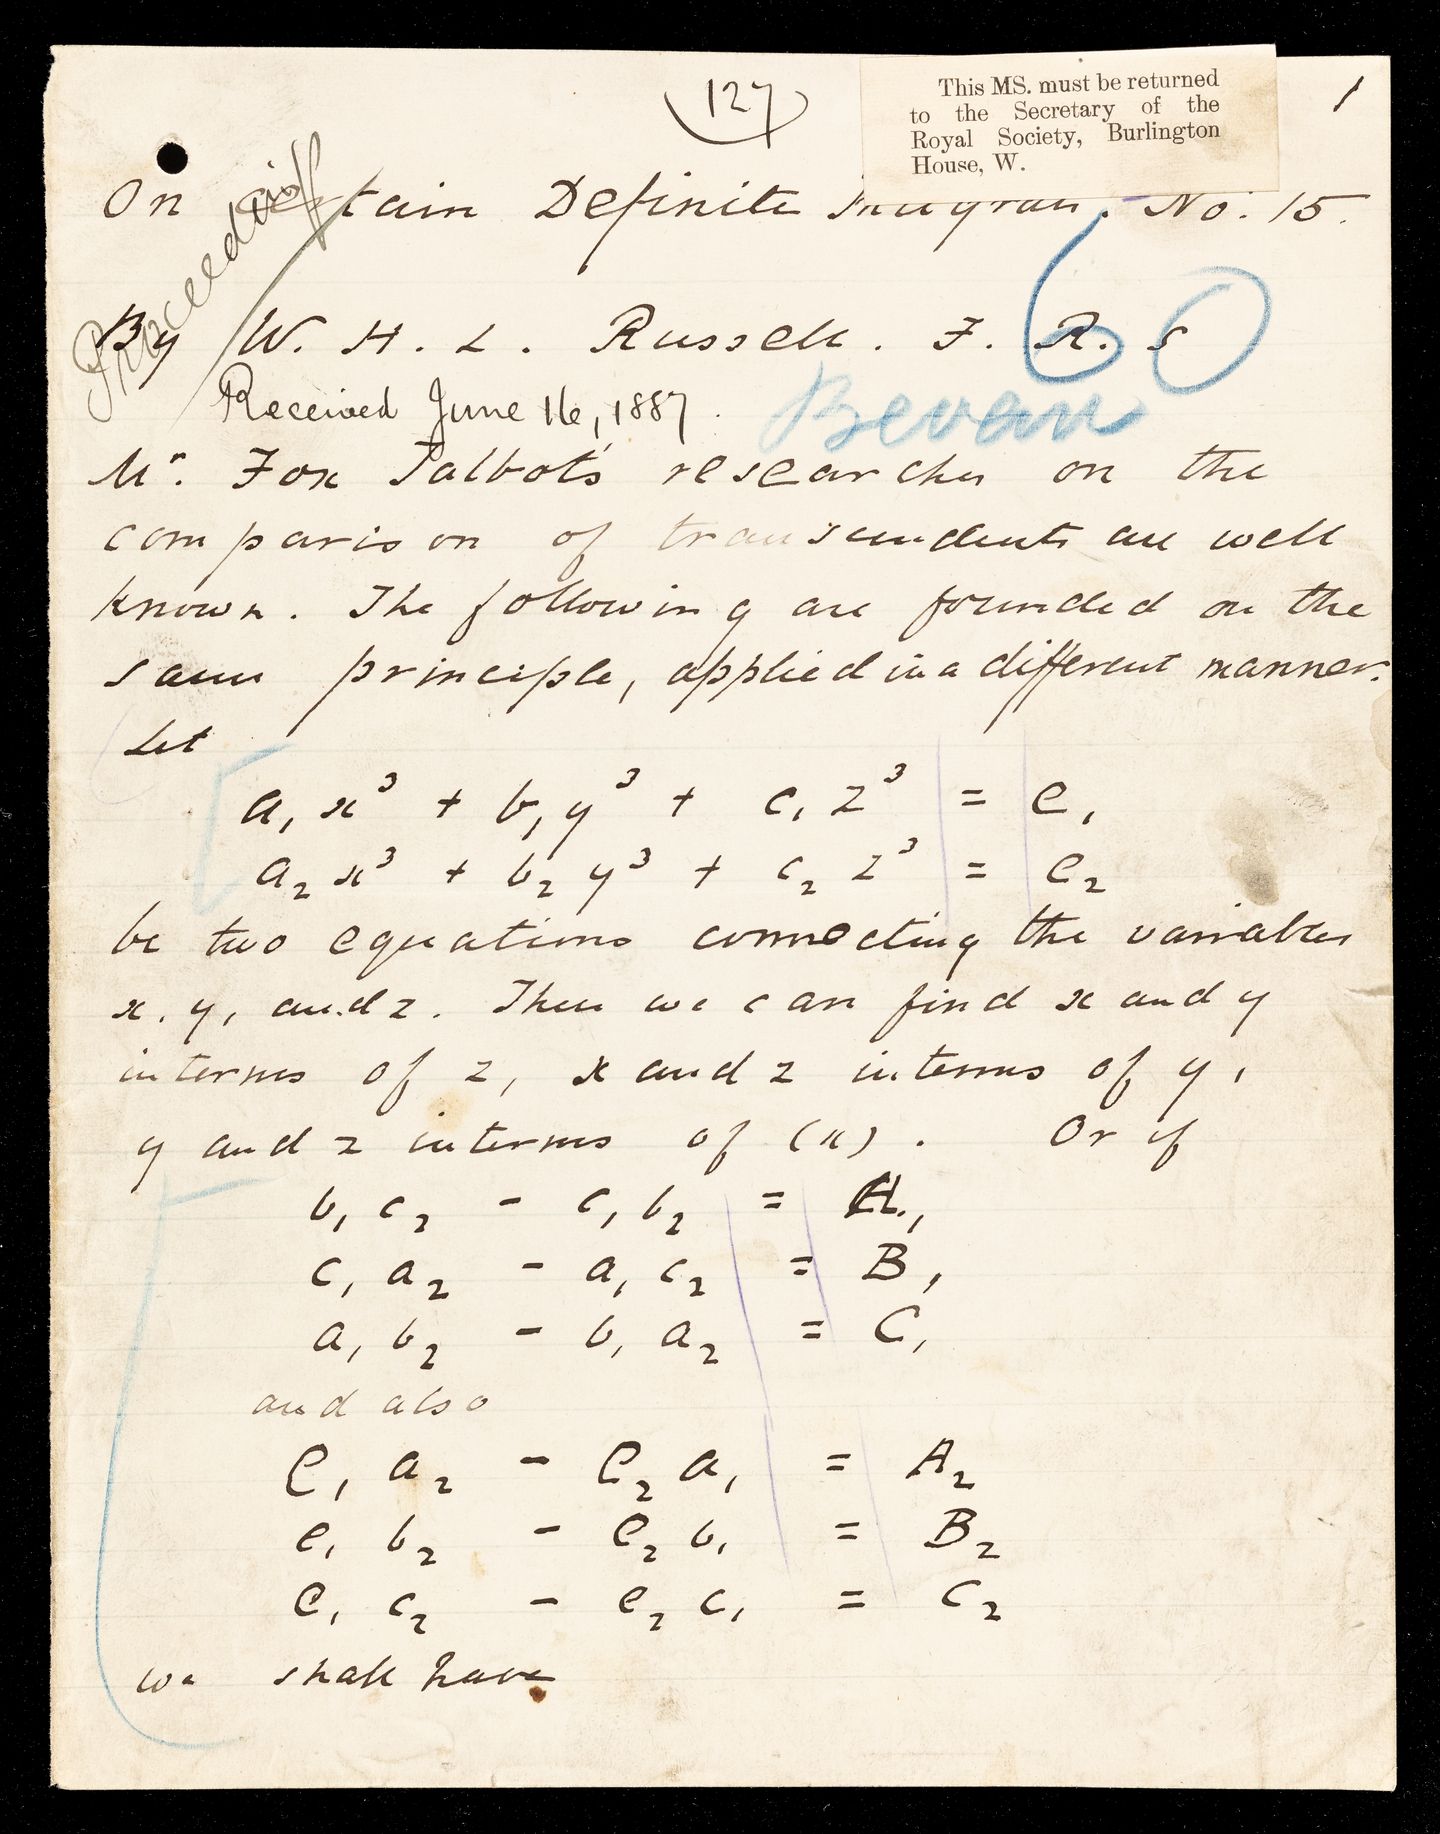 (127)
This MS. must be returned
to the Secretary of the
Royal Society, Burlington
House, W.
1
Proceedings
On certain Definite Integrals. No. 15.
By W. H. L. Russell. F. R. S
60
Received June 16, 1887.
Bevan
Mr. Fox Talbot's researches on the
comparison of transcendents are well
known. The following are founded on the
same principle, applied in a different manner.
Let
a₁x³ + b₁y³ + c₁z³ = e₁
a₂x³ + b₂y³ + c₂z³ = e₂
be two equations connecting the variables
x, y, and z. Then we can find x and y
in terms of z, x and z in terms of y,
y and z in terms of (x). Or if
b₁c₂ - c₁b₂ = A₁,
c₁a₂ - a₁c₂ = B₁
a₁b₂ - b₁a₂ = C₁
and also
e₁a₂ - e₂a₁ = A₂
e₁b₂ - e₂b₁ = B₂
e₁c₂ - e₂c₁ = C₂
we shall have